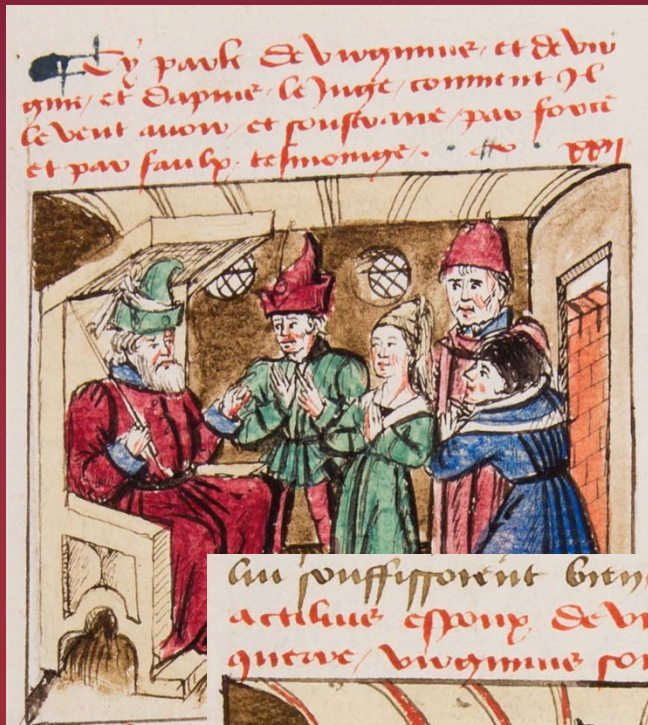 Cy parle de virginius et de vir
gine et dapius le juge comment il
le veut avoir et soustraire par force
et par faulx tesmonige. xxxii
lui souffissoient bien
actilius espoux de vi
querre virginius son